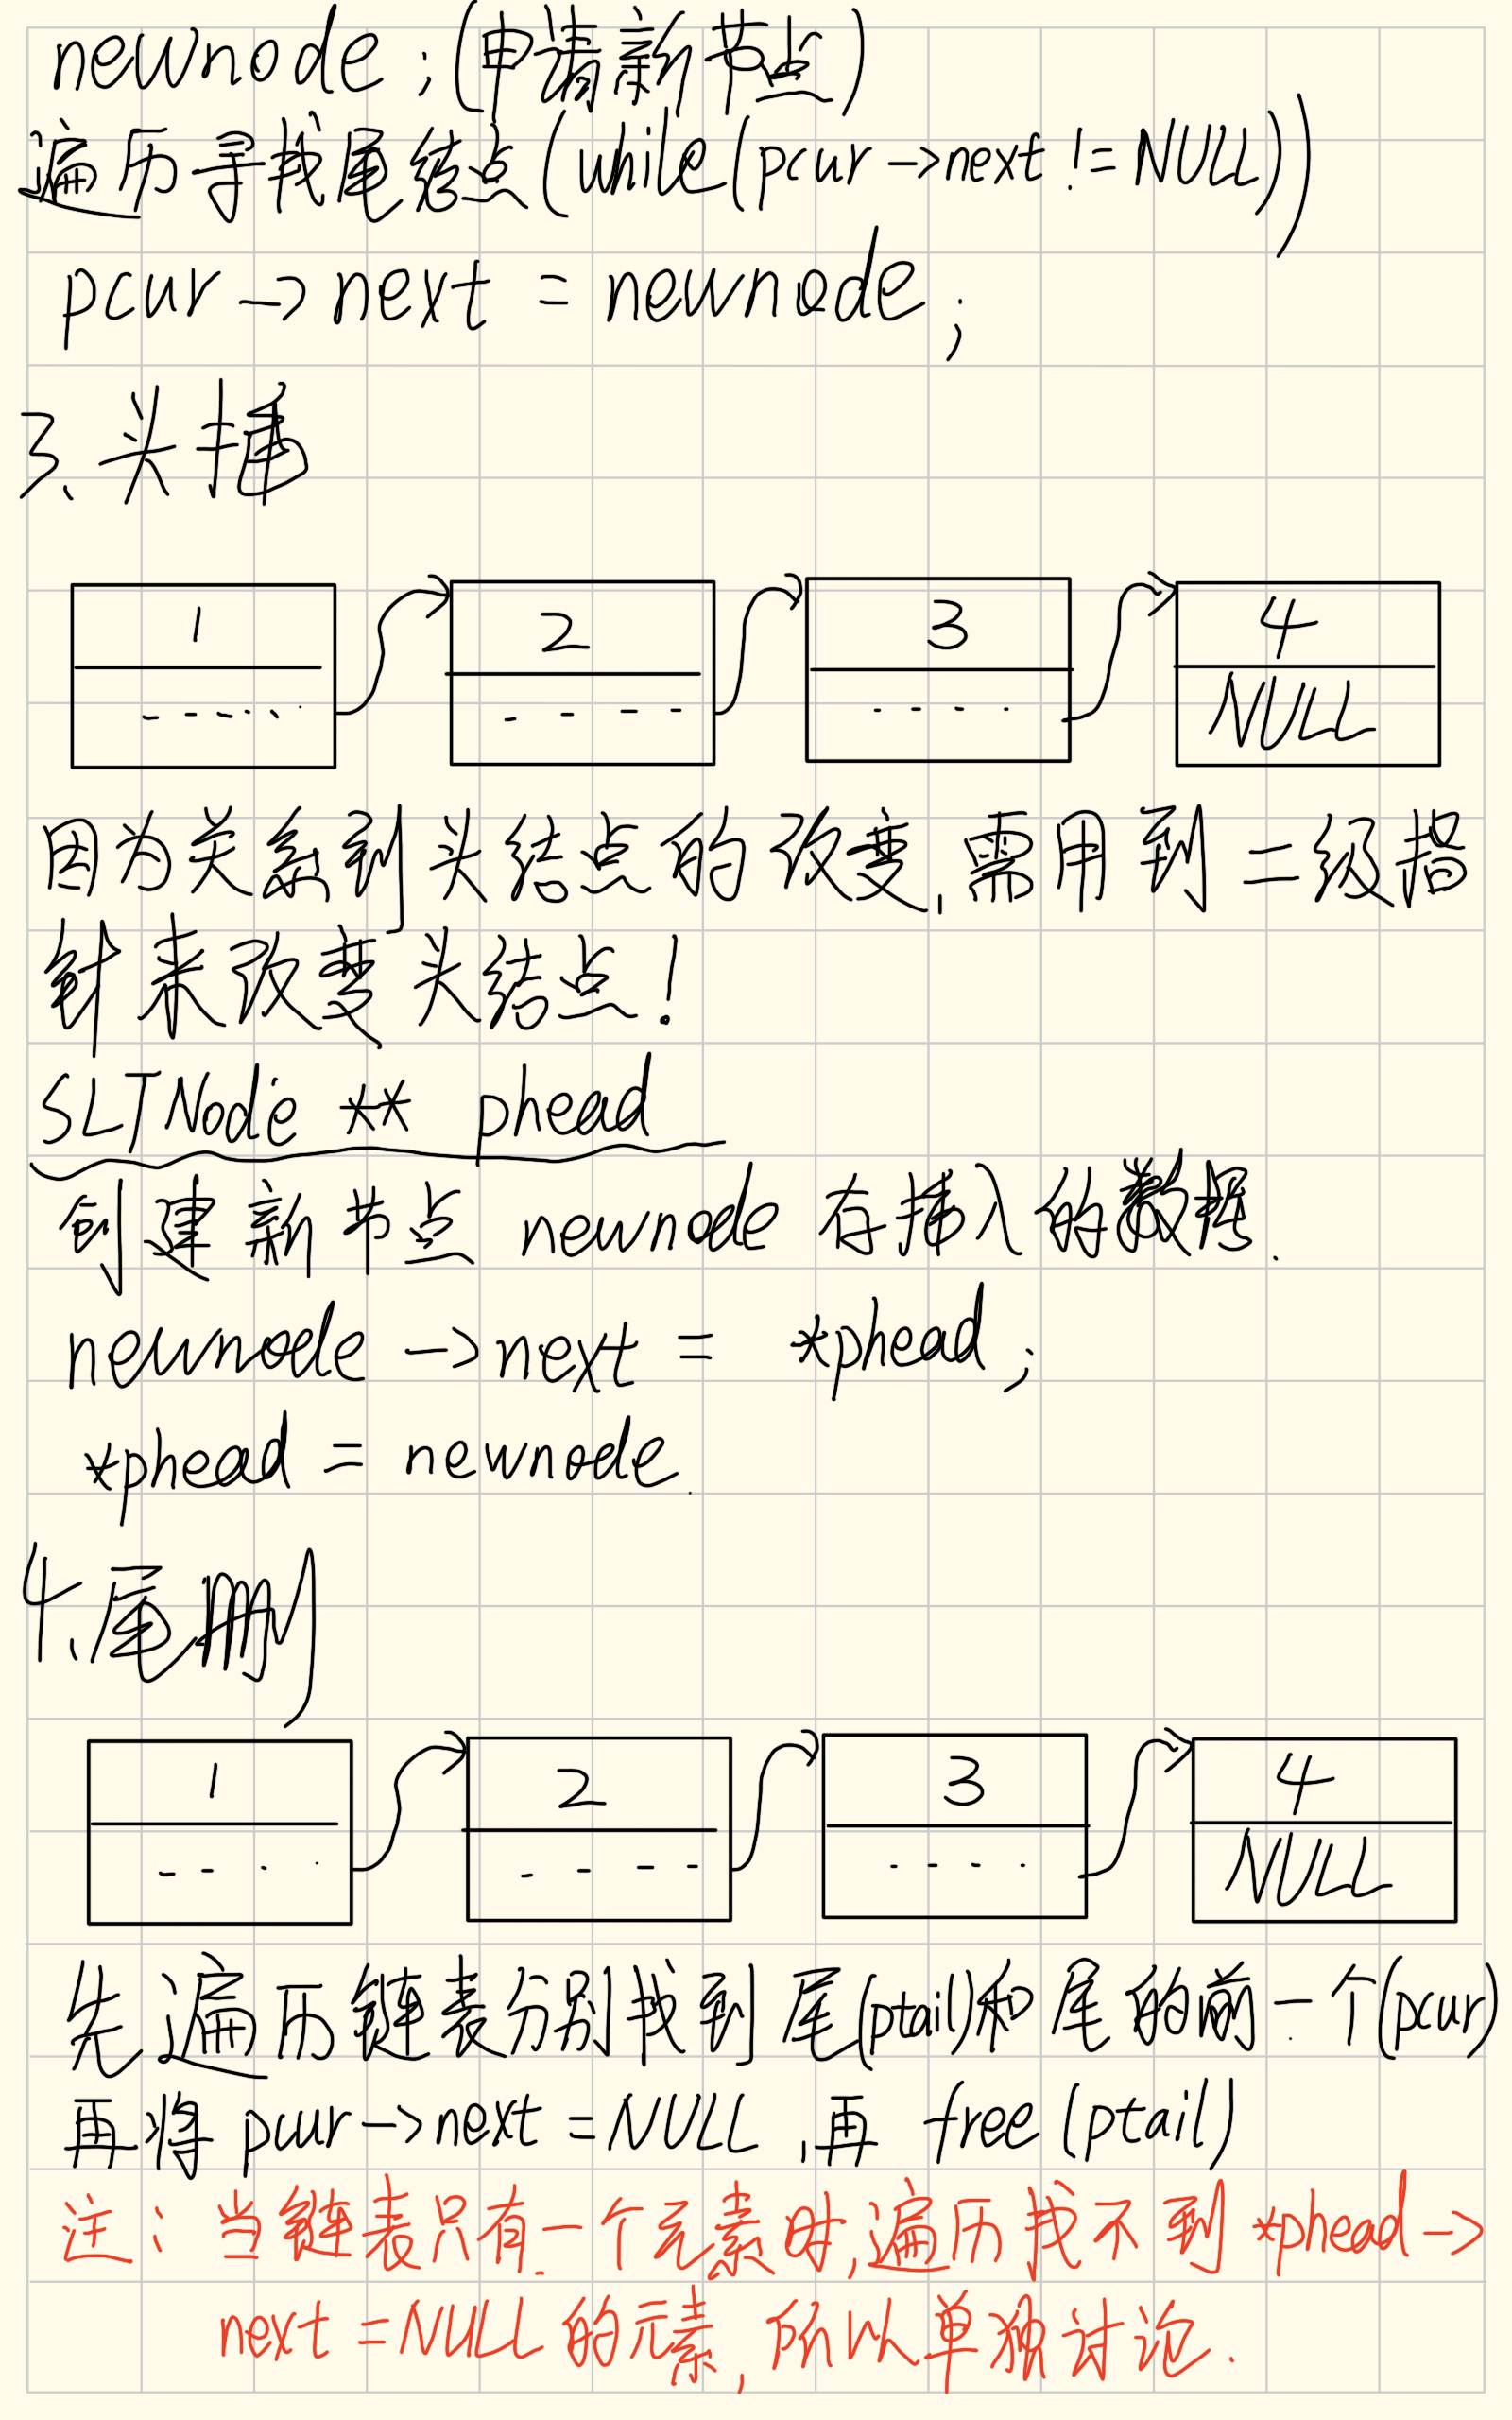 newnode；(申请新节点)
遍历寻找尾结点(while(pcur->next != NULL))
pcur->next = newnode;
3、头插
1 2 3 4
NULL
因为关系到头结点的改变,需用到二级指
针来改变头结点!
SLTNode ** phead
创建新节点 newnode 存插入的数据.
newnode->next = *phead;
*phead = newnode.
4、尾删
1 2 3 4
NULL
先遍历链表分别找到尾(ptail)和尾的前一个(pcur)
再将 pcur->next = NULL,再 free(ptail)
注：当链表只有一个元素时,遍历找不到 *phead->
next = NULL 的元素,所以单独讨论.